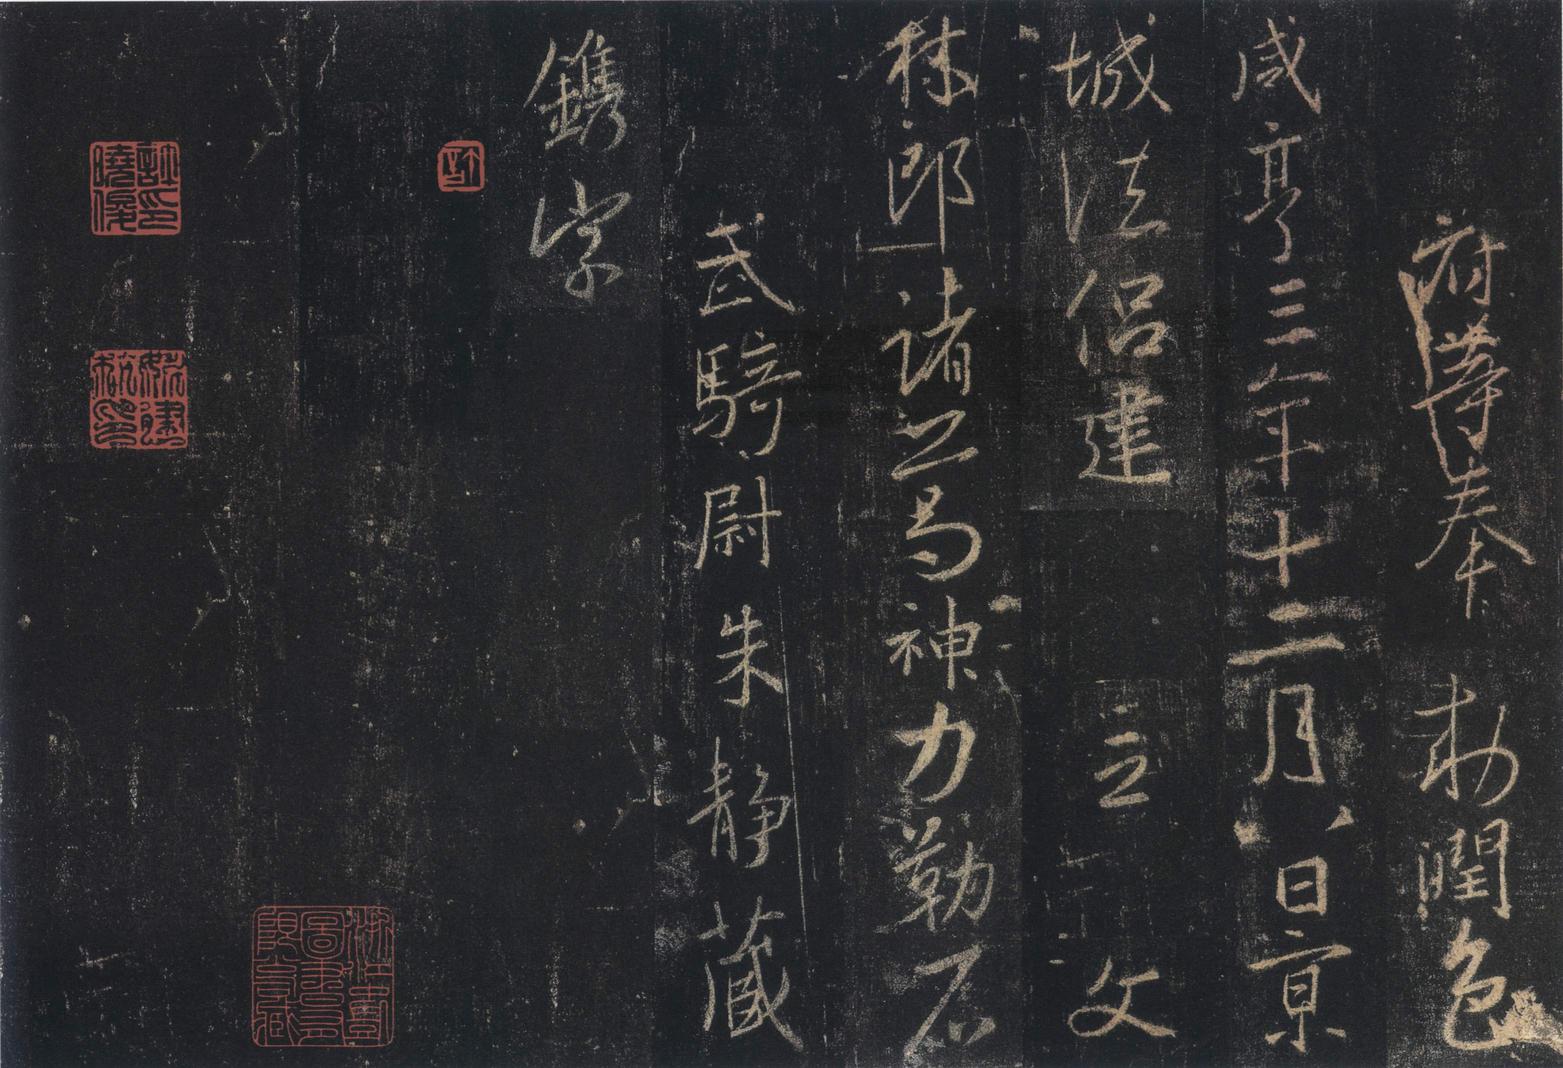 府等奉 敕潤色
咸亨三年十二月八日京
城法侶建立 文
林郎諸葛神力勒石
武騎尉朱静藏
鐫字